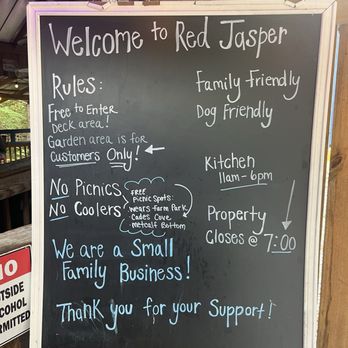 Welcome to Red Jasper
Rules:
Free to Enter
Deck area!
Garden area is for
Customers Only!
No Picnics
No Coolers
FREE
Picnic Spots:
Wears Farm Park
Cades Cove
Metcalf Bottom
We are a Small
Family Business!
Thank you for your Support!
Family Friendly
Dog Friendly
Kitchen
11am-6pm
Property
Closes @ 7:00
NO
TSIDE
COHOL
RMITTED